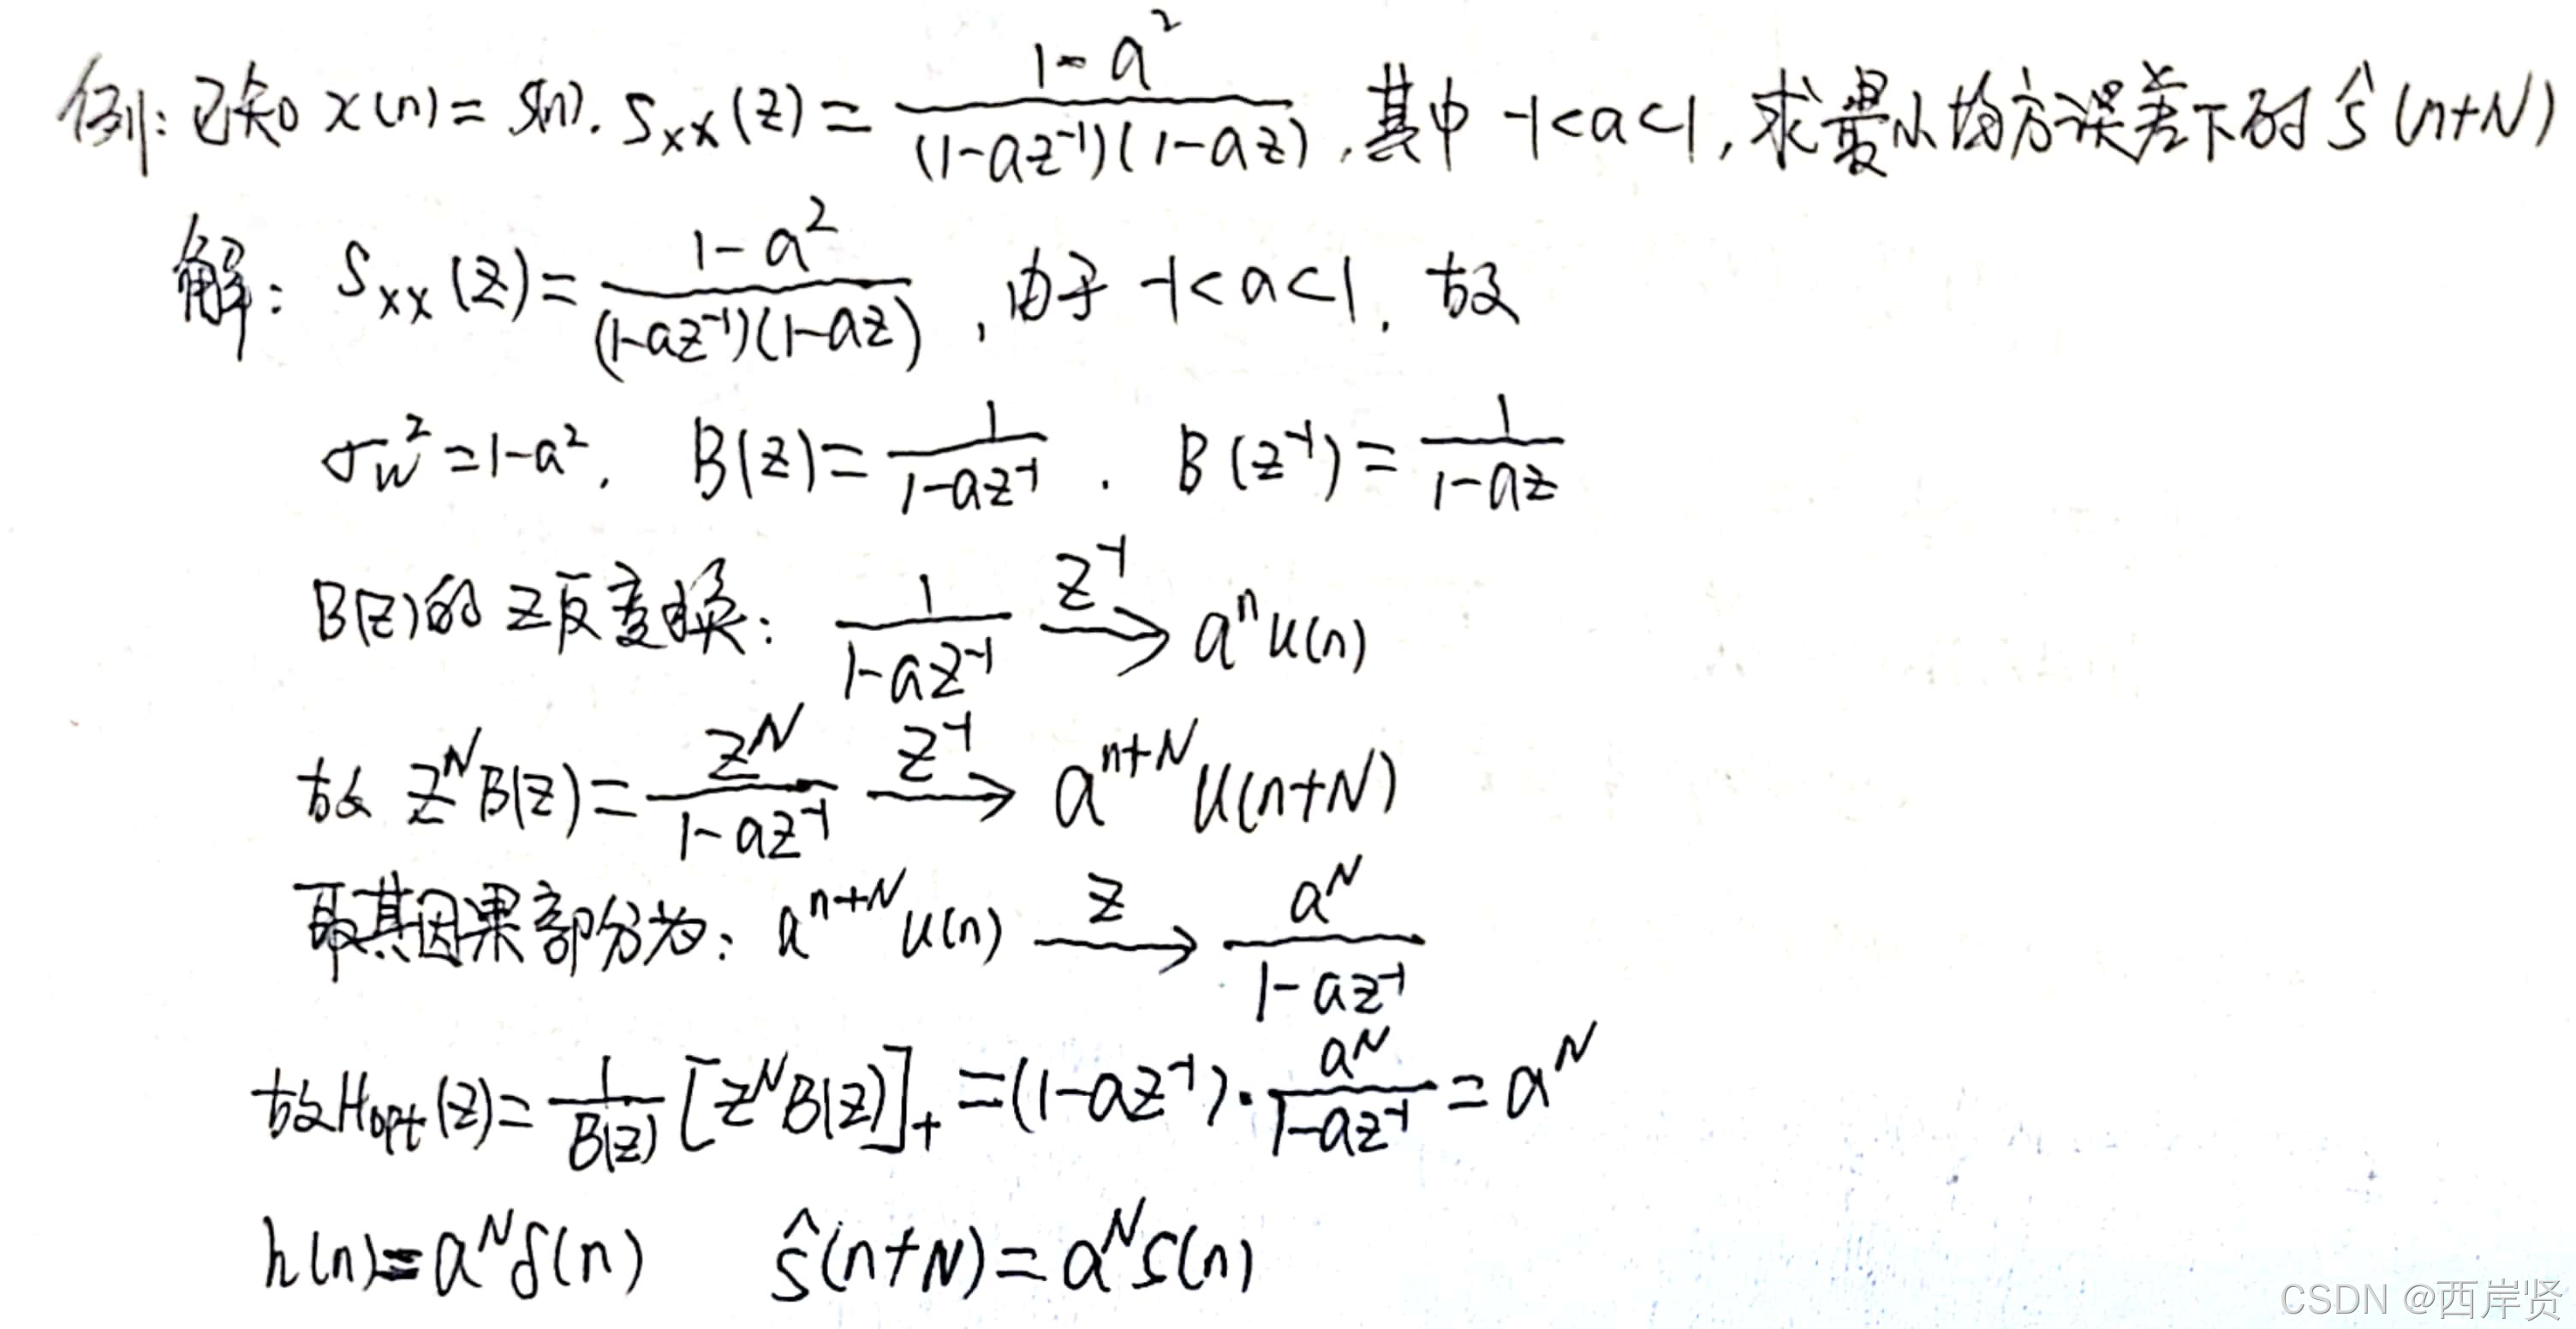 例：已知 x(n)=s(n). S_xx(z)= (1-a²)/((1-az⁻¹)(1-az)), 其中 -1<a<1, 求最小均方误差下的 ŝ(n+N)
解： S_xx(z)= (1-a²)/((1-az⁻¹)(1-az)) , 由于 -1<a<1, 故
σ_w²=1-a², B(z)= 1/(1-az⁻¹) . B(z⁻¹)= 1/(1-az)
B(z)的Z反变换： 1/(1-az⁻¹) —Z⁻¹→ aⁿu(n)
故 z^N B(z)= z^N/(1-az⁻¹) —Z⁻¹→ a^(n+N) u(n+N)
取其因果部分为： a^(n+N) u(n) —Z→ a^N/(1-az⁻¹)
故H_opt(z)= 1/B(z) [z^N B(z)]_+ =(1-az⁻¹)· a^N/(1-az⁻¹) = a^N
h(n)=a^N δ(n) ŝ(n+N)=a^N s(n)
CSDN @西岸贤